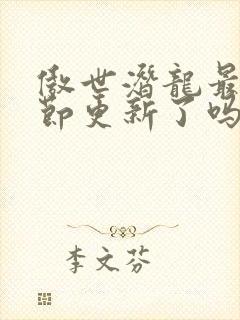 傲世潛龍最
節更新了吗
李文芬